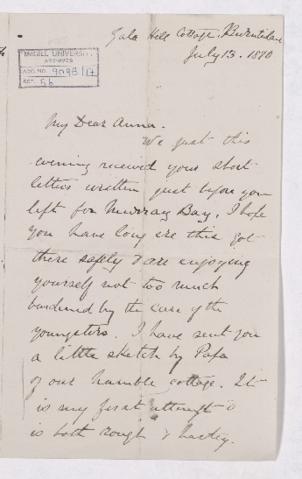 Gala Hill Cottage,
July 13. 1870
McGILL UNIVERSITY
ARCHIVES
ACC. NO. 9098/17
REF. 56
My Dear Anna
We just this
evening received your short
letter written just before you
left for Murray Bay. I hope
you have long ere this got
there safely & are enjoying
yourself not too much
burdened by the care of the
youngsters. I have sent you
a little sketch by Papa
of our humble cottage. It
is my first attempt &
is both rough & hasty.